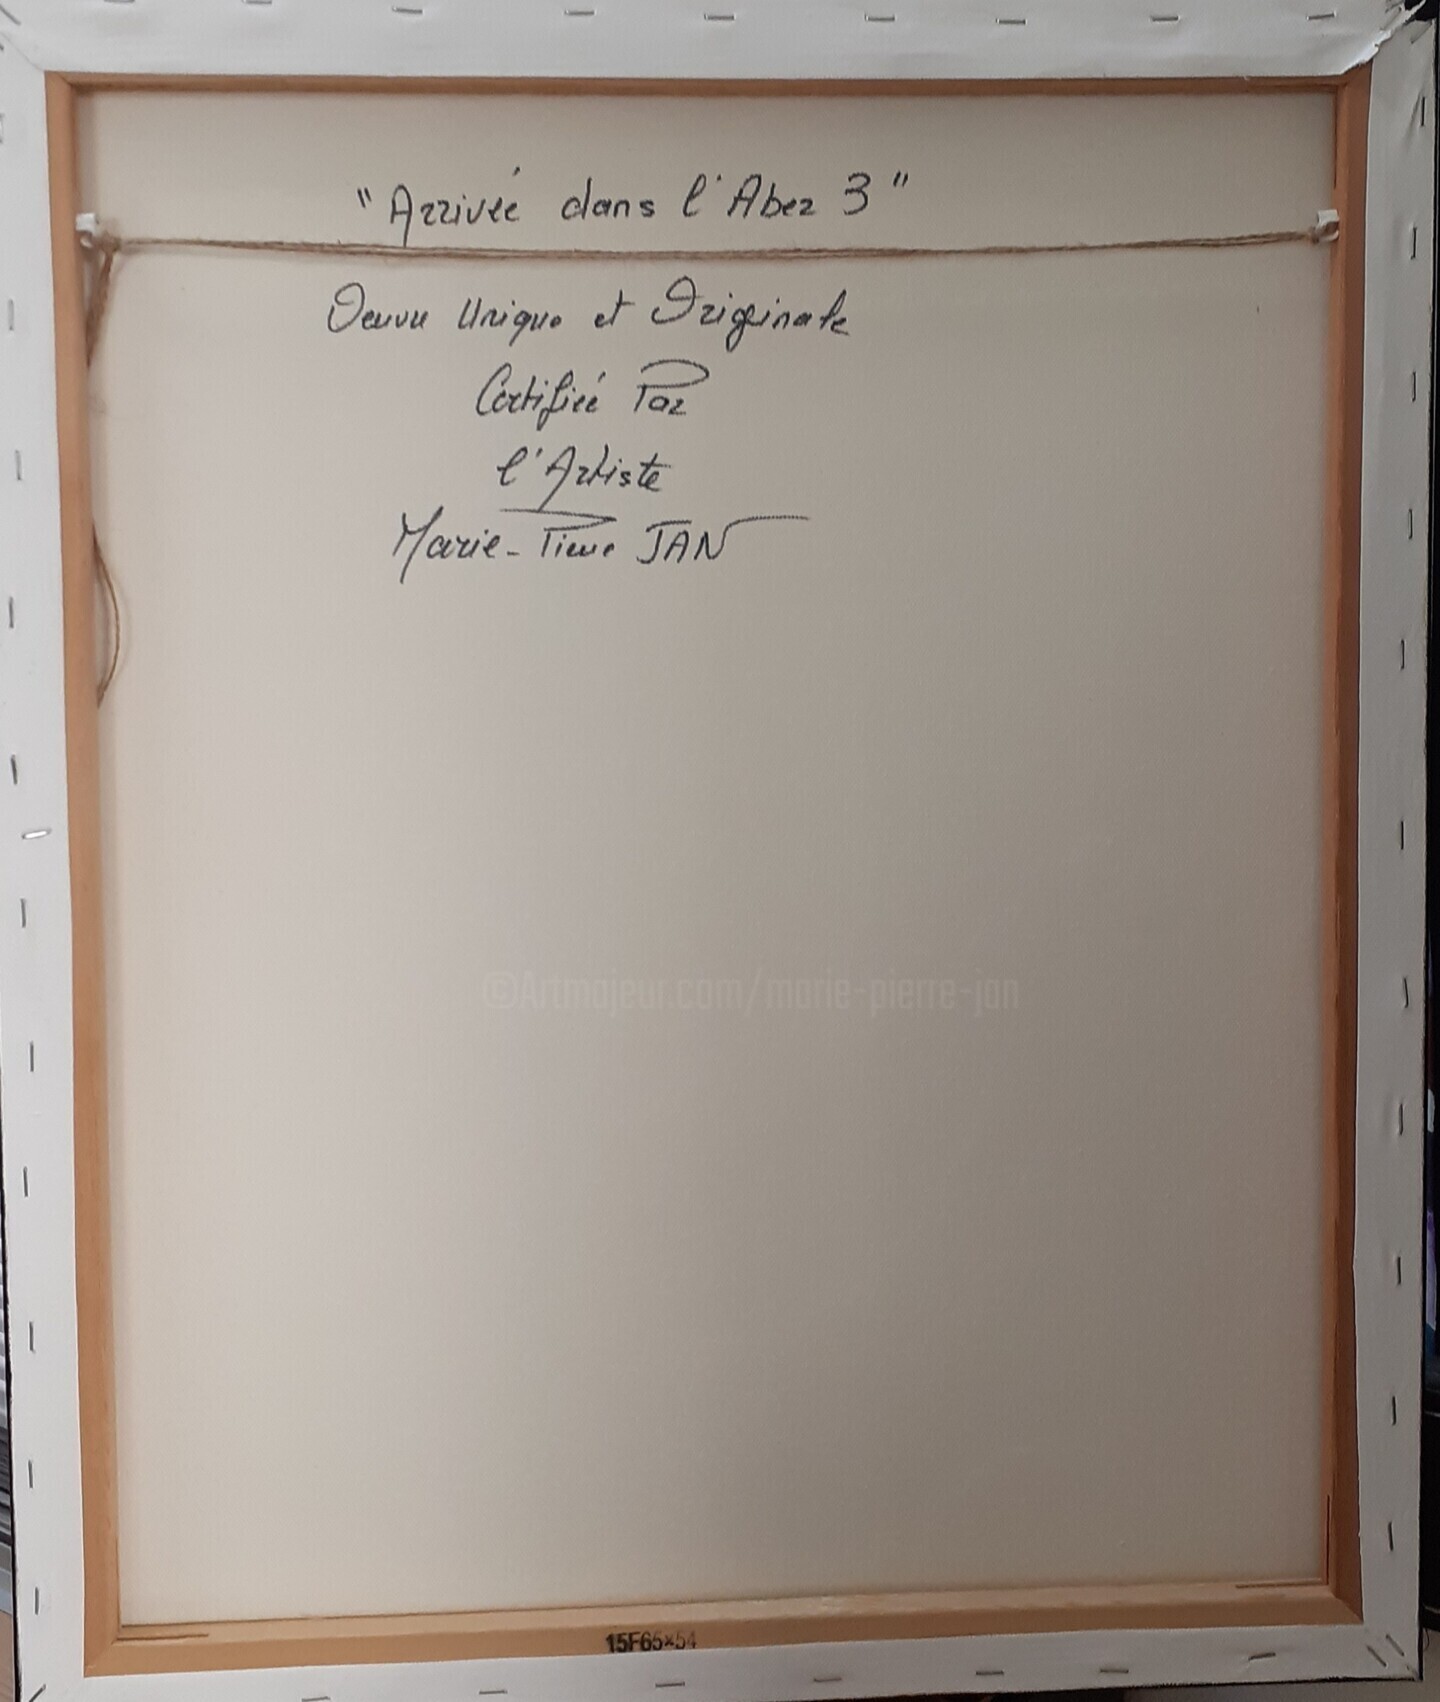 "Arrivée dans l'Aber 3"
Oeuvre Unique et Originale
Certifiée Par
l'Artiste
Marie-Pierre JAN
©Artmajeur.com/marie-pierre-jan
15F65x54